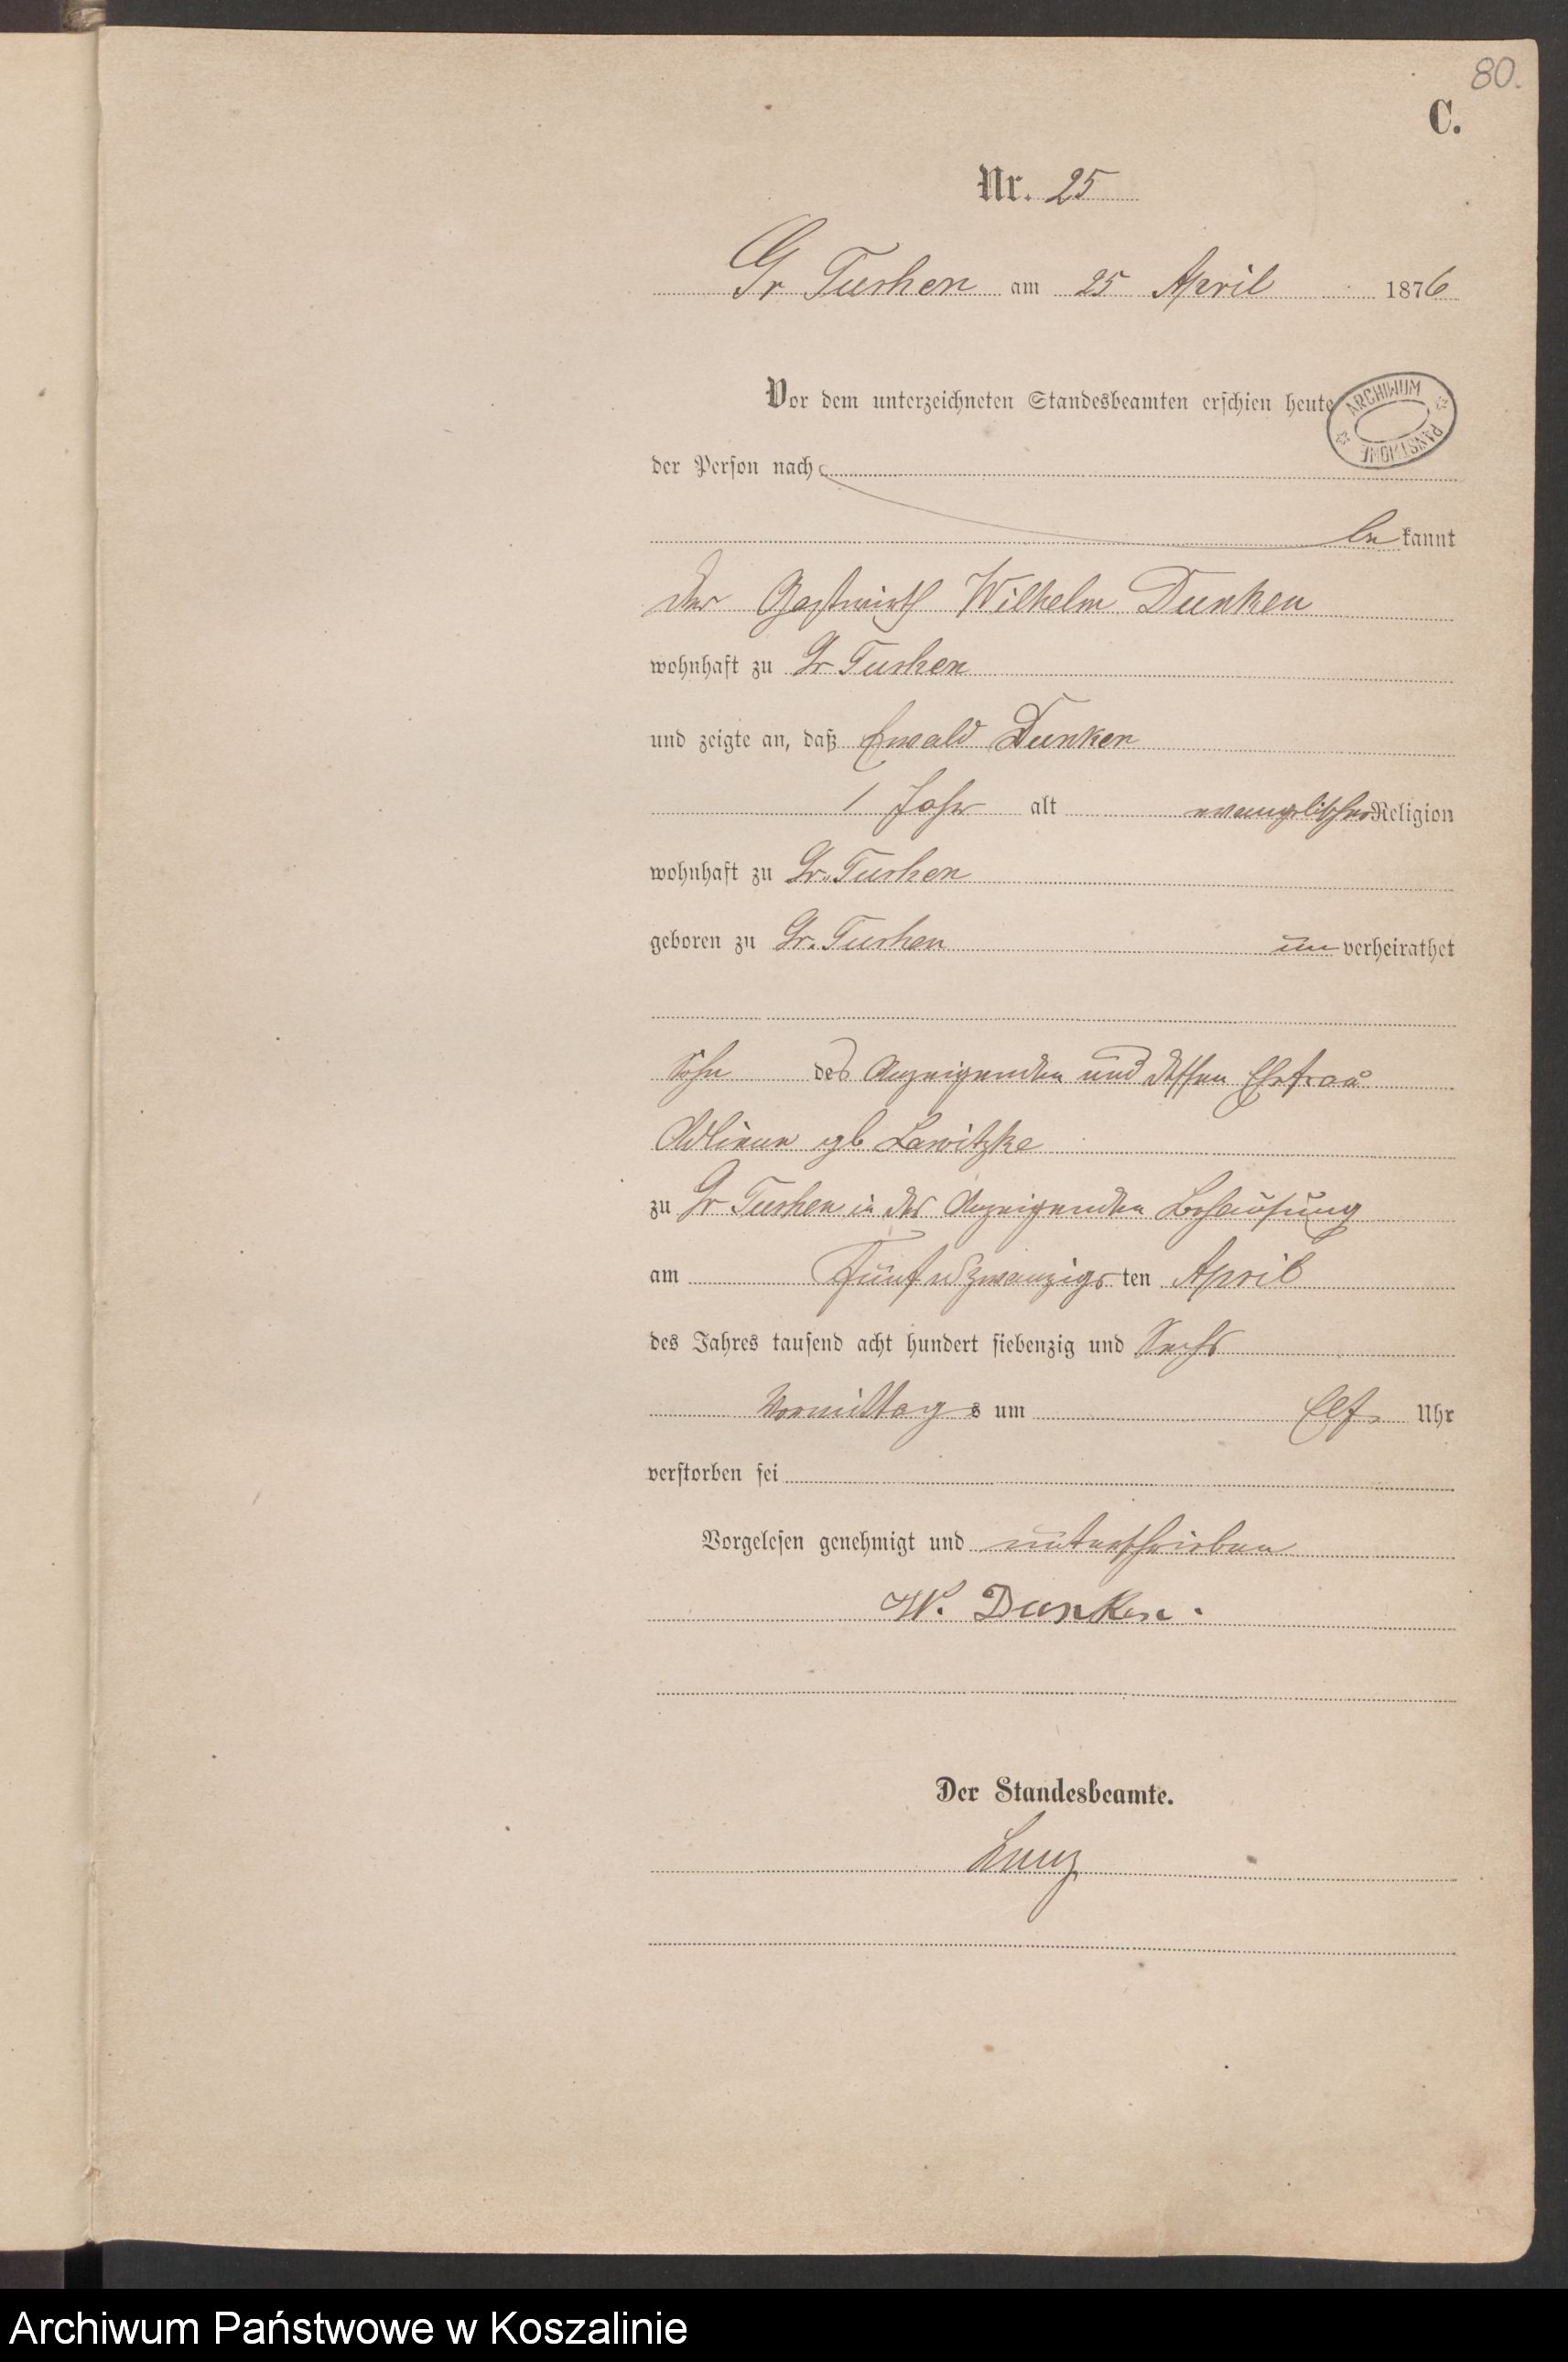 80.
C.
Nr. 25
Gr Tuchen am 25 April 1876
Vor dem unterzeichneten Standesbeamten erschien heute
ARCHIWUM PAŃSTWOWE
der Person nach
bekannt
der Gastwirth Wilhelm Dunken
wohnhaft zu Gr Tuchen
und zeigte an, daß Ewald Dunken
1 Jahr alt evangelischer Religion
wohnhaft zu Gr. Tuchen
geboren zu Gr. Tuchen unverheirathet
Sohn des Anzeigenden und dessen Ehefrau
gb Lawitzke
zu Gr Tuchen in des Anzeigenden Behausung
am Fünf u zwanzigsten April
des Jahres tausend acht hundert siebenzig und Sechs
Vormittags um Elf Uhr
verstorben sei
Vorgelesen genehmigt und unterschrieben
W. Dunken.
Der Standesbeamte.
Archiwum Państwowe w Koszalinie